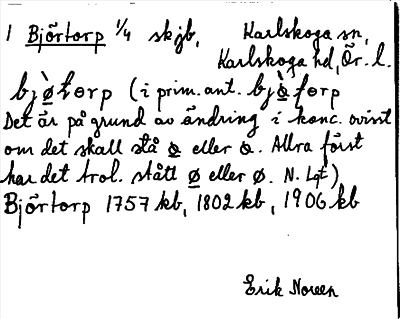 1 Björtorp 1/4 skjb, Karlskoga sn,
Karlskoga hd, Ör. l.
bjø̀torp (i prim. ant. bjø̀torp
Det är på grund av ändring i konc. ovisst
om det skall stå eller. Allra först
har det trol. stått ø eller ø. N. Lgt)
Björtorp 1757 kb, 1802 kb, 1906 kb
Erik Noreen